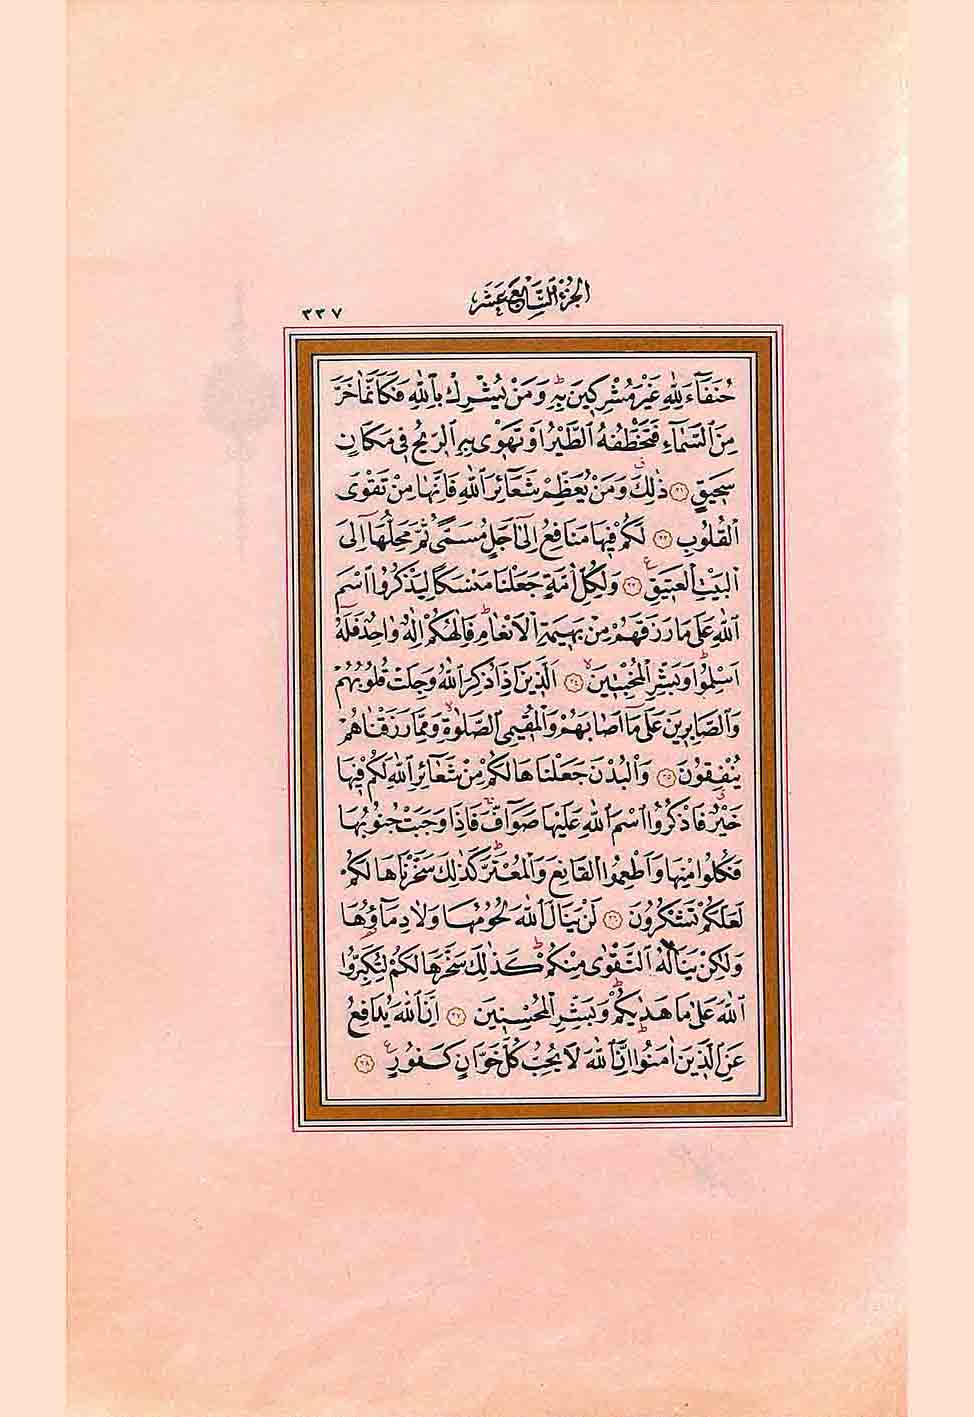 الجزء السابع عشر
٣٣٧
حُنَفَٓاءَ لِلّٰهِ غَيْرَ مُشْرِكٖينَ بِهٖ وَمَنْ يُشْرِكْ بِاللّٰهِ فَكَاَنَّمَا خَرَّ
مِنَ السَّمَٓاءِ فَتَخْطَفُهُ الطَّيْرُ اَوْ تَهْوٖى بِهِ الرّٖيحُ فٖى مَكَانٍ
سَحٖيقٍ ﴿٣١﴾ ذٰلِكَ وَمَنْ يُعَظِّمْ شَعَٓائِرَ اللّٰهِ فَاِنَّهَا مِنْ تَقْوَى
الْقُلُوبِ ﴿٣٢﴾ لَكُمْ فٖيهَا مَنَافِعُ اِلٰٓى اَجَلٍ مُسَمًّى ثُمَّ مَحِلُّهَٓا اِلَى
الْبَيْتِ الْعَتٖيقِ ﴿٣٣﴾ وَلِكُلِّ اُمَّةٍ جَعَلْنَا مَنْسَكًا لِيَذْكُرُوا اسْمَ
اللّٰهِ عَلٰى مَا رَزَقَهُمْ مِنْ بَهٖيمَةِ الْاَنْعَامِ فَاِلٰهُكُمْ اِلٰهٌ وَاحِدٌ فَلَهُٓ
اَسْلِمُوا وَبَشِّرِ الْمُخْبِتٖينَ ﴿٣٤﴾ اَلَّذٖينَ اِذَا ذُكِرَ اللّٰهُ وَجِلَتْ قُلُوبُهُمْ
وَالصَّابِرٖينَ عَلٰى مَٓا اَصَابَهُمْ وَالْمُقٖيمِى الصَّلٰوةِ وَمِمَّا رَزَقْنَاهُمْ
يُنْفِقُونَ ﴿٣٥﴾ وَالْبُدْنَ جَعَلْنَاهَا لَكُمْ مِنْ شَعَٓائِرِ اللّٰهِ لَكُمْ فٖيهَا
خَيْرٌ فَاذْكُرُوا اسْمَ اللّٰهِ عَلَيْهَا صَوَٓافَّ فَاِذَا وَجَبَتْ جُنُوبُهَا
فَكُلُوا مِنْهَا وَاَطْعِمُوا الْقَانِعَ وَالْمُعْتَرَّ كَذٰلِكَ سَخَّرْنَاهَا لَكُمْ
لَعَلَّكُمْ تَشْكُرُونَ ﴿٣٦﴾ لَنْ يَنَالَ اللّٰهَ لُحُومُهَا وَلَا دِمَٓاؤُهَا
وَلٰكِنْ يَنَالُهُ التَّقْوٰى مِنْكُمْ كَذٰلِكَ سَخَّرَهَا لَكُمْ لِتُكَبِّرُوا
اللّٰهَ عَلٰى مَا هَدٰيكُمْ وَبَشِّرِ الْمُحْسِنٖينَ ﴿٣٧﴾ اِنَّ اللّٰهَ يُدَافِعُ
عَنِ الَّذٖينَ اٰمَنُوا اِنَّ اللّٰهَ لَا يُحِبُّ كُلَّ خَوَّانٍ كَفُورٍ ﴿٣٨﴾